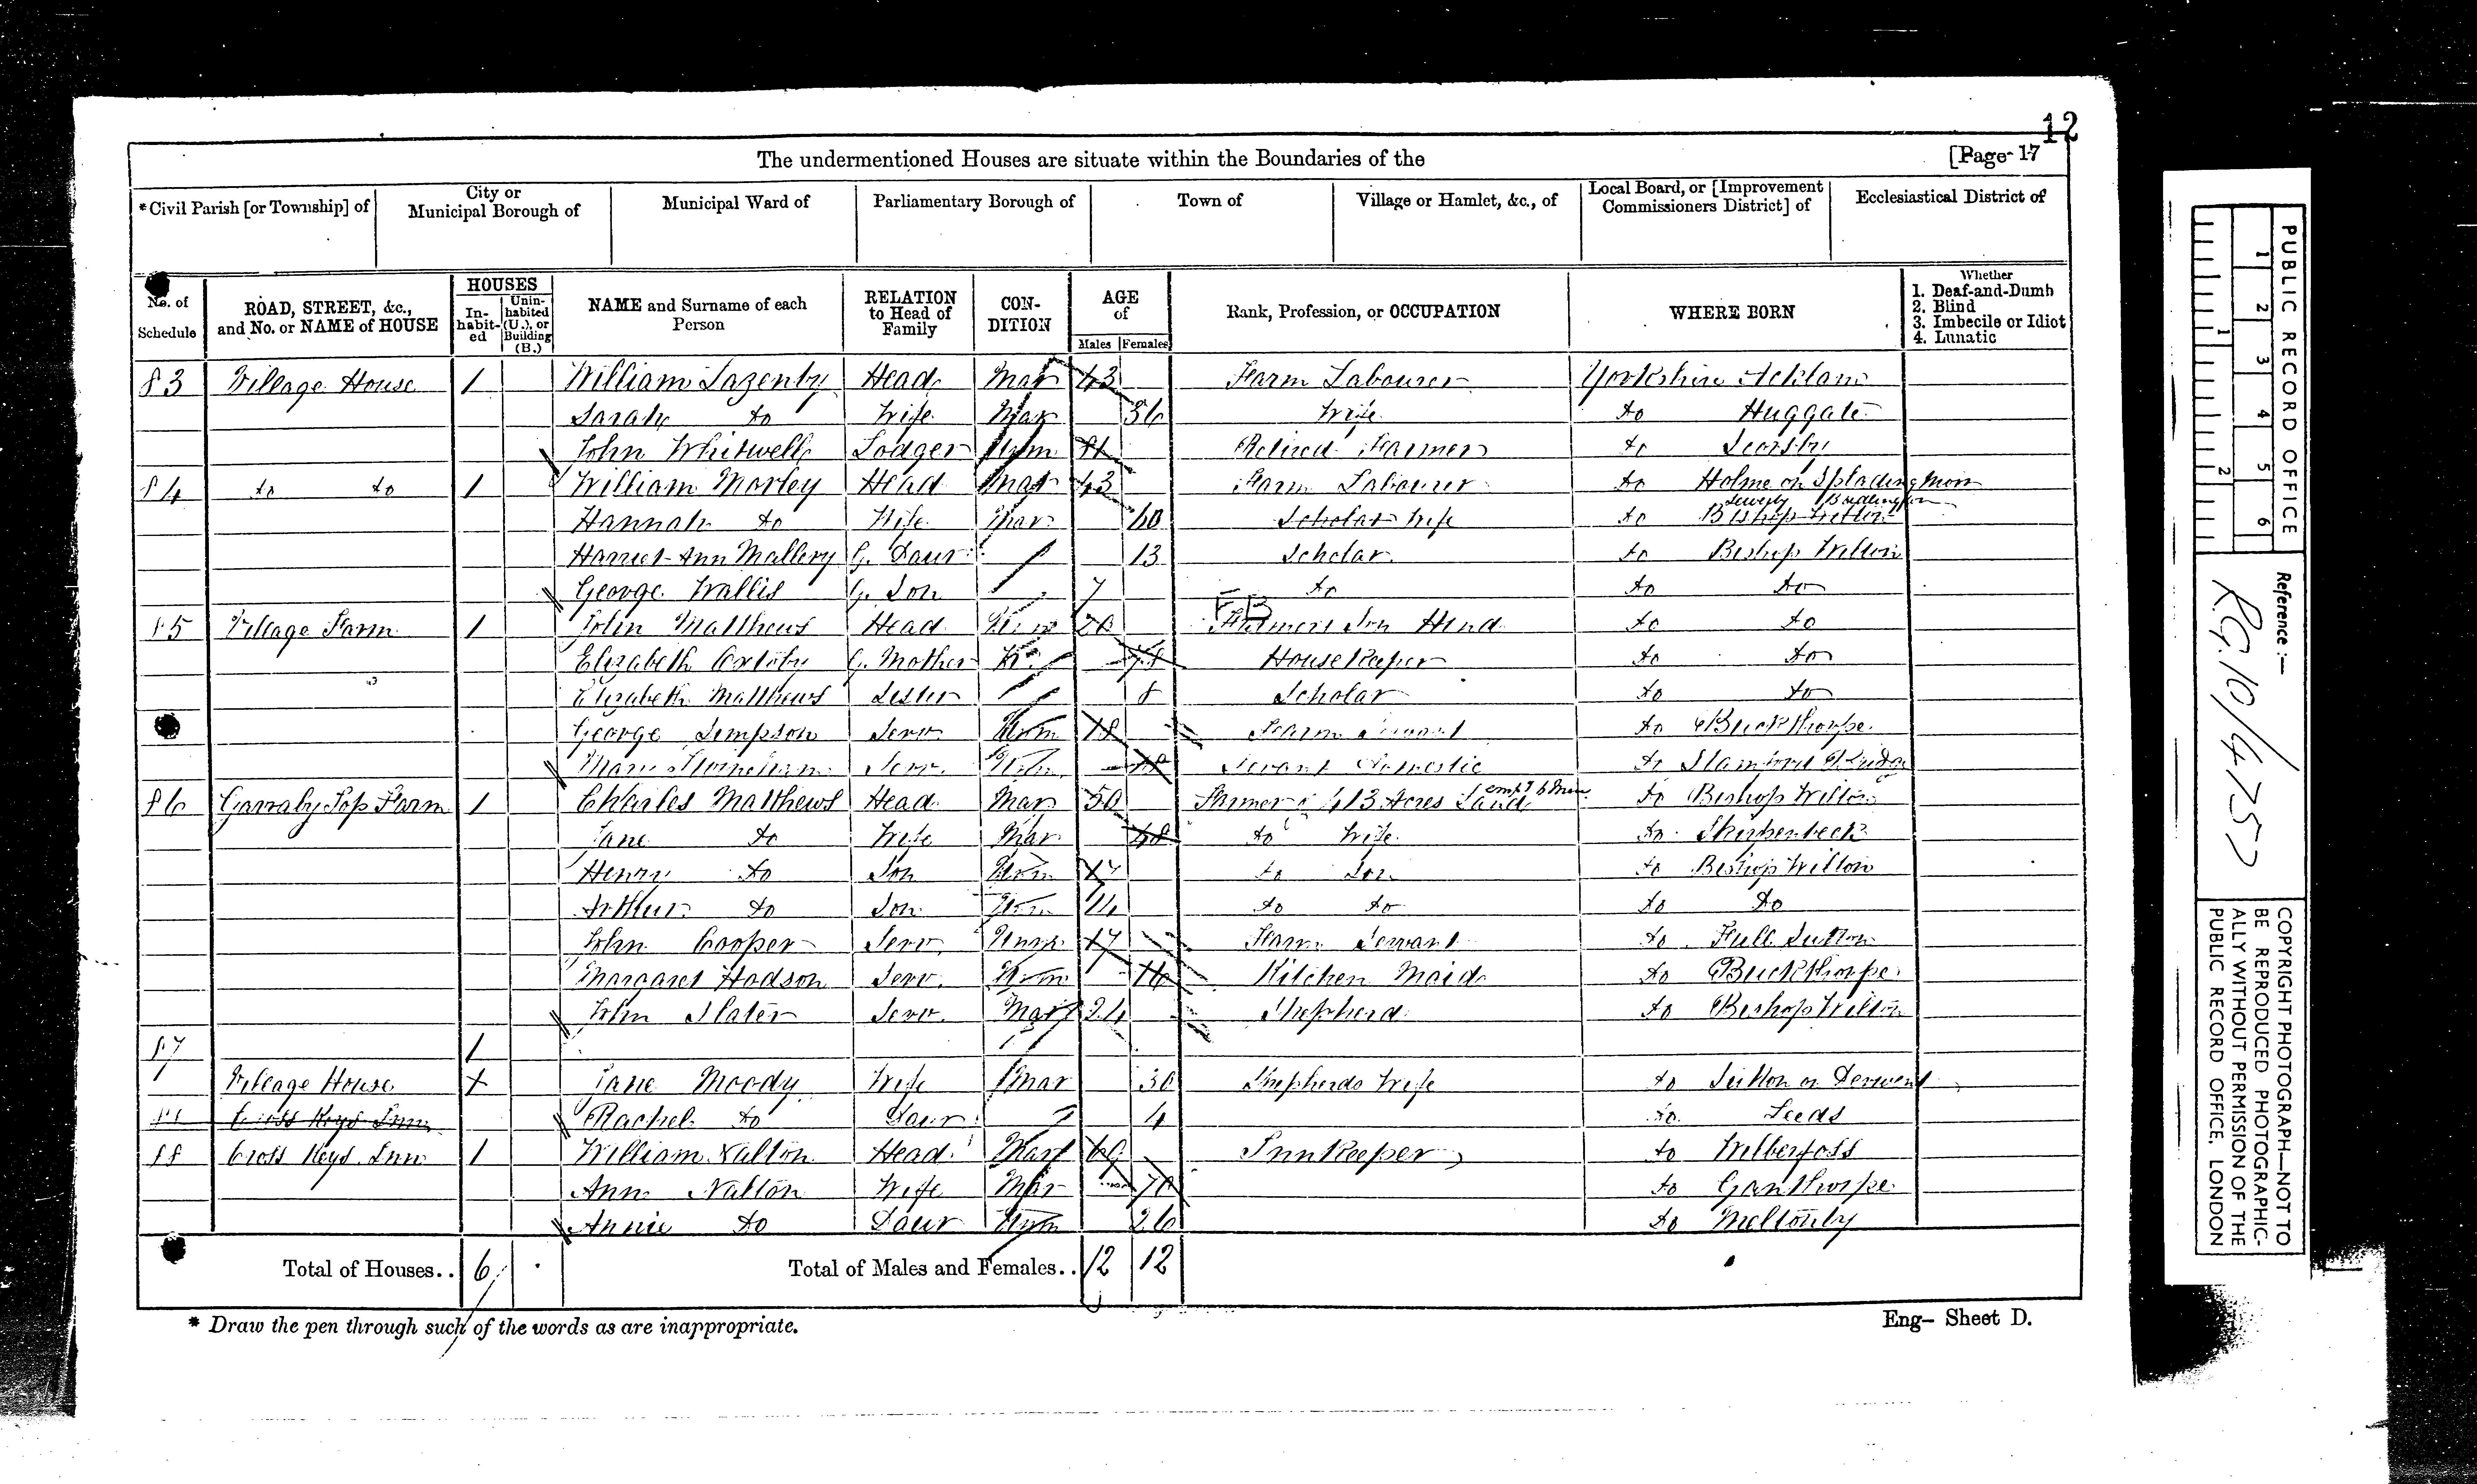 12
The undermentioned Houses are situate within the Boundaries of the [Page 17
*Civil Parish [or Township] of City or Municipal Borough of Municipal Ward of Parliamentary Borough of Town of Village or Hamlet, &c., of Local Board, or [Improvement Commissioners District] of Ecclesiastical District of
No. of Schedule ROAD, STREET, &c., and No. or NAME of HOUSE HOUSES Inhabited Uninhabited (U.), or Building (B.) NAME and Surname of each Person RELATION to Head of Family CONDITION AGE of Males Females Rank, Profession, or OCCUPATION WHERE BORN Whether 1. Deaf-and-Dumb 2. Blind 3. Imbecile or Idiot 4. Lunatic
83 Village House 1 William Lazenby Head Mar 43 Farm Labourer Yorkshire Acklam
Sarah do Wife Mar 36 Wife do Huggate
John Whitwell Lodger Unm 81 Retired Farmer do
84 do do 1 William Morley Head Mar 43 Farm Labourer do Holme on Splading Moor
Hannah do Wife Mar 60 Scholar Wife do Bishop Wilton Sewerly Bridlington
Harriet Ann Mallery G. Daur 13 Scholar do Bishop Wilton
George Wallis G. Son 7 do do do
85 Village Farm 1 John Matthews Head Unm 20 Farmers Son Hind do do
Elizabeth G. Mother W. 78 House Keeper do do
Elizabeth Matthews Sister 8 Scholar do do
George Simpson Serv. Unm 18 Farm Servant do Buckthorpe
Mary Serv. Unm Servant Domestic do Stamford Bridge
86 Garraby Top Farm 1 Charles Matthews Head Mar 50 Farmer of 413 Acres Land empl 6 Men do Bishop Wilton
Jane do Wife Mar 48 do Wife do Skirpenbeck
Henry do Son Unm 17 do Son do Bishop Wilton
Arthur do Son Unm 14 do do do do
John Cooper Serv. Unm 17 Farm Servant do Full Sutton
Margaret Hodson Serv. Unm 16 Kitchen Maid do Buckthorpe
John Slater Serv. Mar 24 Shepherd do Bishop Wilton
87 1
Village House Jane Moody Wife Mar 30 Shepherds Wife do Sutton on Derwent
88 Cross Keys Inn Rachel do Daur 4 do Leeds
88 Cross Keys Inn 1 William Nalton Head Mar Inn Keeper do Wilberfoss
Ann Nalton Wife Mar 70 do Ganthorpe
Annie do Daur Unm 26 do Meltonby
Total of Houses.. 6 Total of Males and Females.. 12 12
* Draw the pen through such of the words as are inappropriate. Eng- Sheet D.
PUBLIC RECORD OFFICE
1 2 3 4 5 6
1 2
Reference:-
R.G. 10/4757
COPYRIGHT PHOTOGRAPH—NOT TO
BE REPRODUCED PHOTOGRAPHIC-
ALLY WITHOUT PERMISSION OF THE
PUBLIC RECORD OFFICE, LONDON